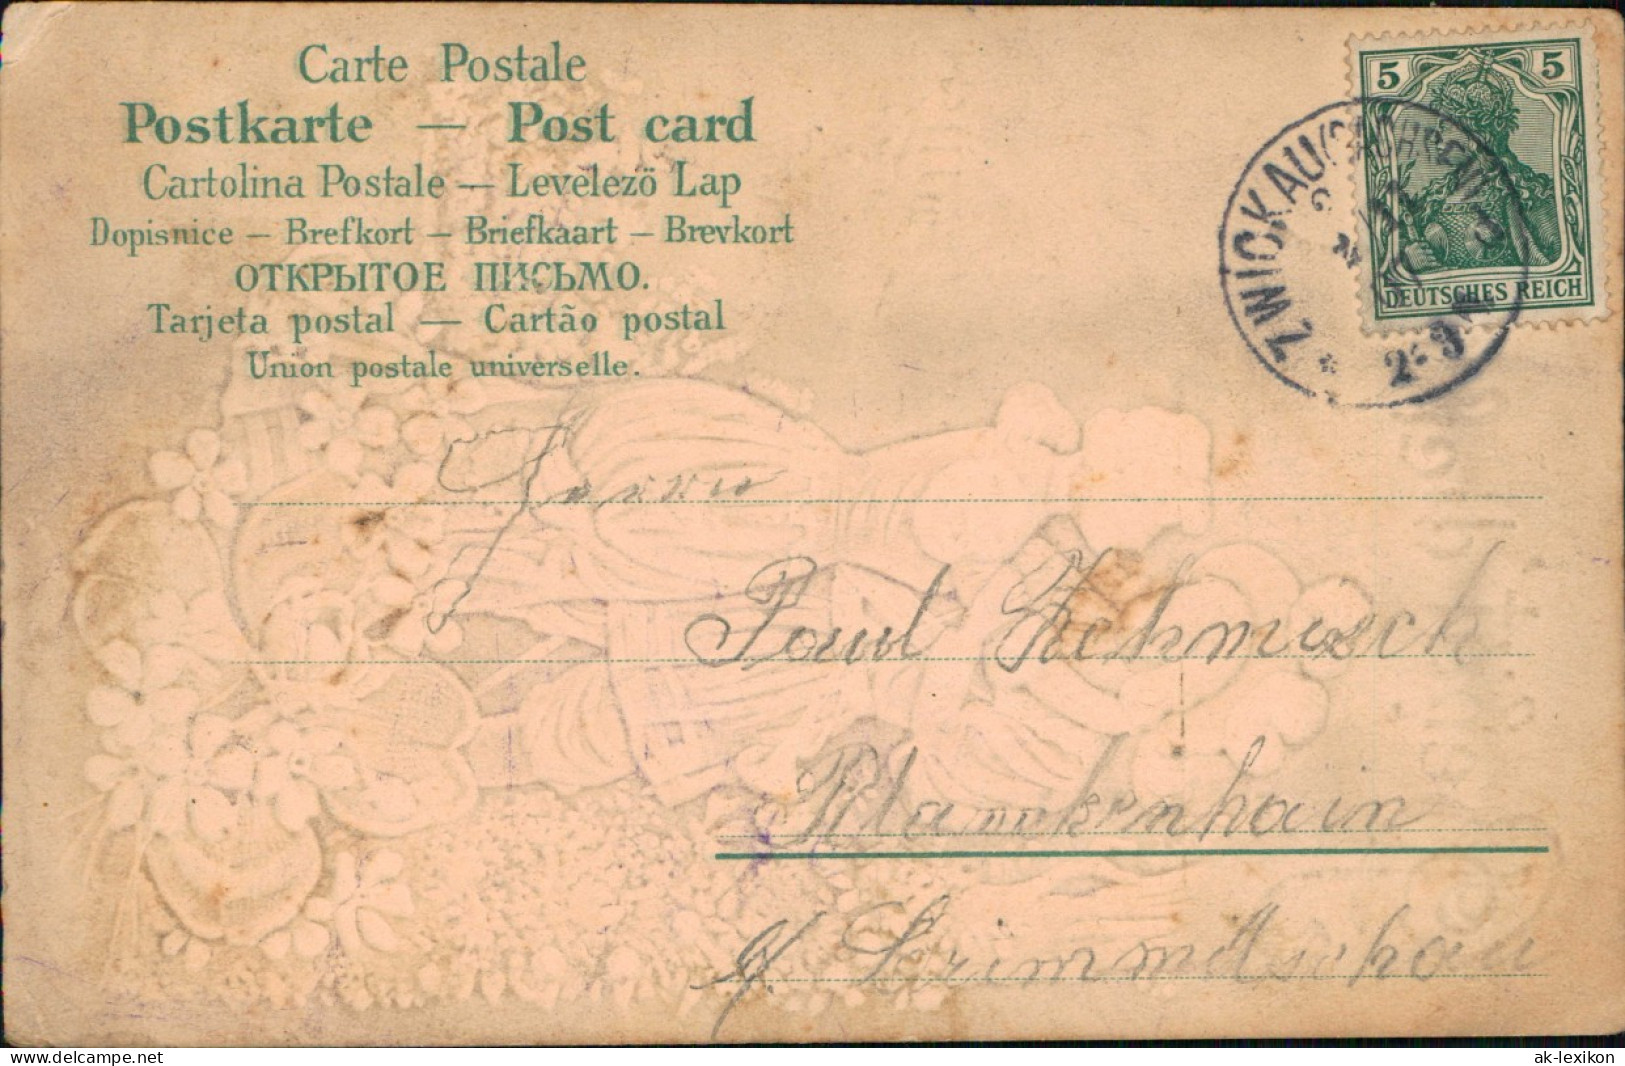 Carte Postale
Postkarte — Post card
Cartolina Postale — Levelezö Lap
Dopisnice — Brefkort — Briefkaart — Brevkort
ОТКРЫТОЕ ПИСЬМО.
Tarjeta postal — Cartão postal
Union postale universelle.
5 5
DEUTSCHES REICH
ZWICKAU (SACHSEN)
2-3 N
Herrn
Paul Zschmisch
Blankenhain
b/ Crimmitschau
www.delcampe.net
ak-lexikon